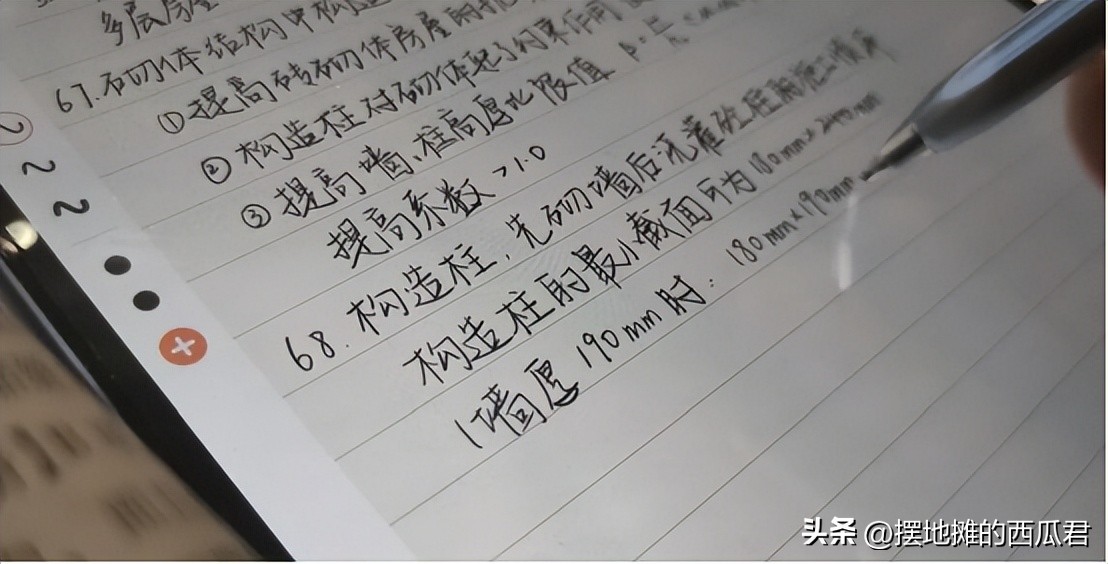 多层房屋
67.石切体结构中构造
①提高砖砌体房屋的抗
②构造柱对砌体起了约束作用
③提高墙、柱高厚比限值 β=
提高系数>1.0
68.构造柱,先砌墙后浇灌砼柱
构造柱的最小截面可为180mm×240mm
(墙厚190mm时:180mm×190mm
头条 @摆地摊的西瓜君